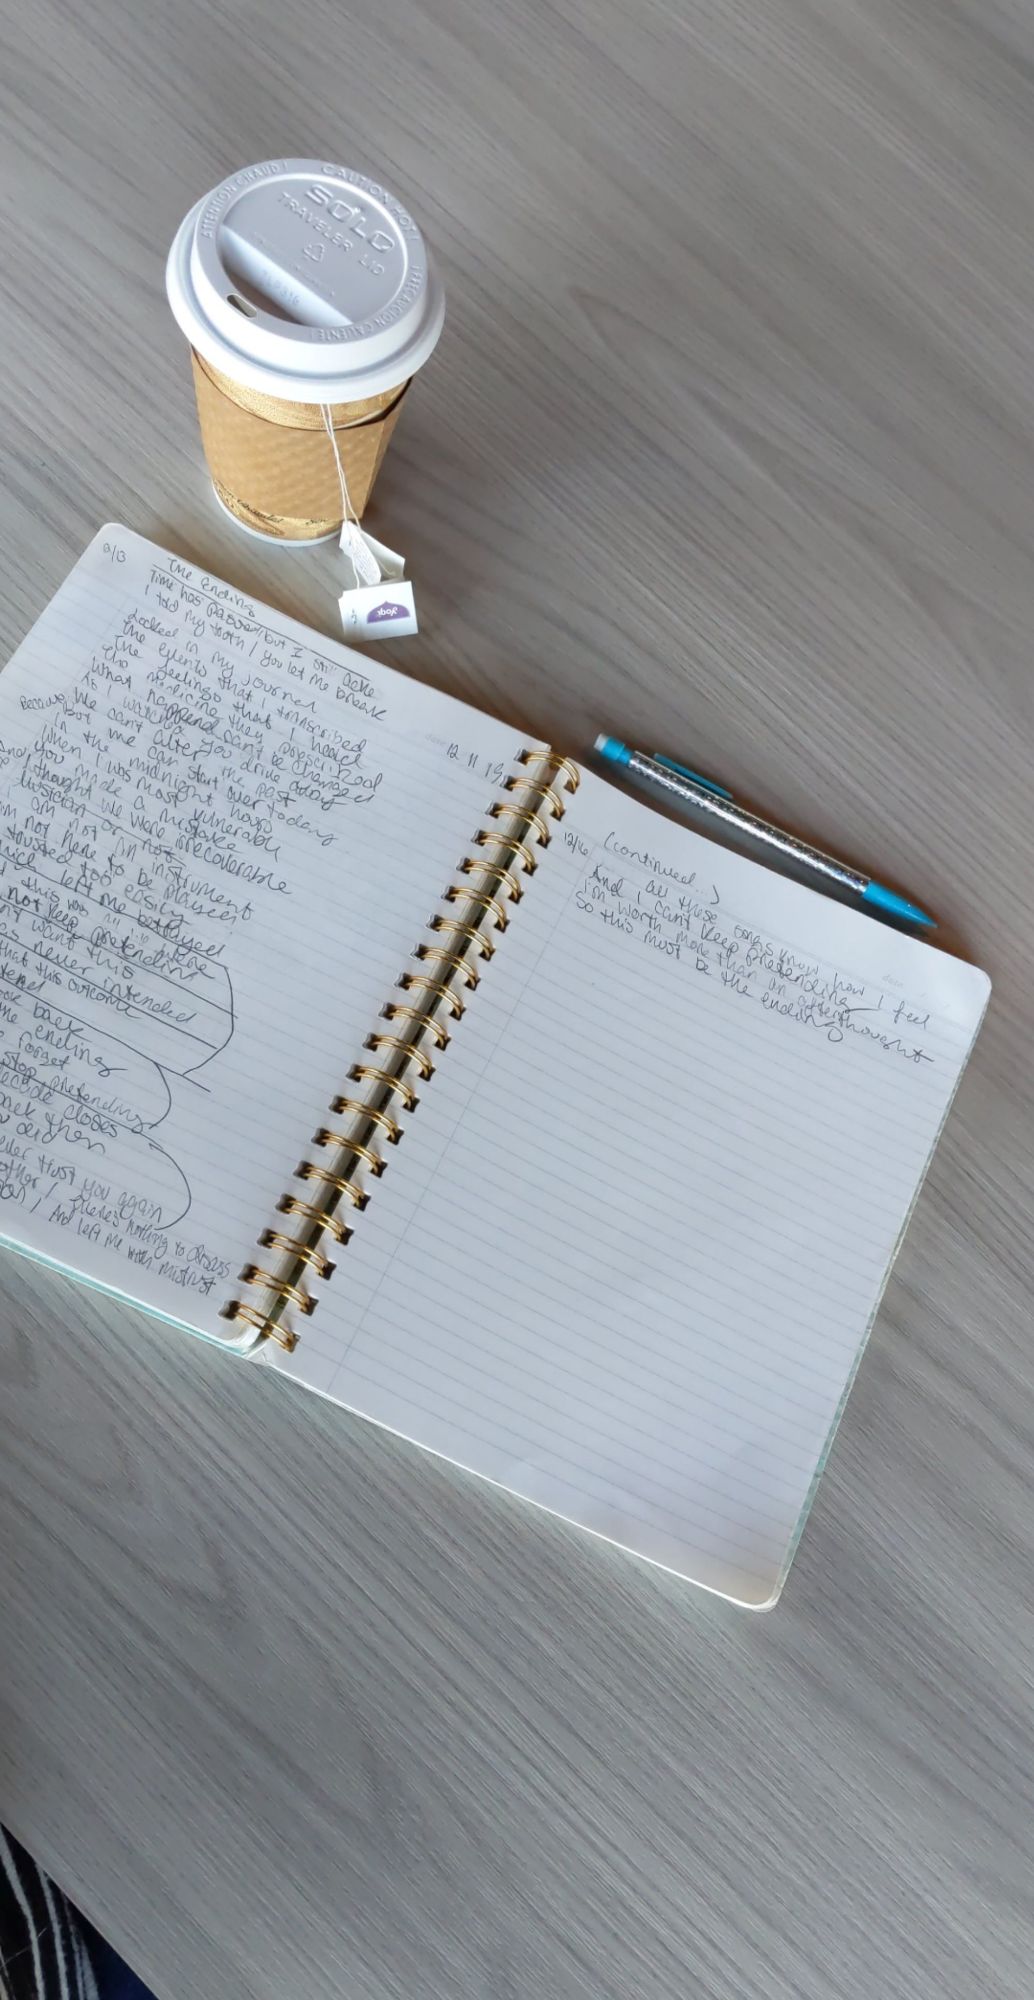 ATTENTION CHAUD!
CAUTION HOT!
SOLO
TRAVELER LID
¡PRECAUCION CALIENTE!
yogi
The Ending
Time has passed/but I still ache
I told my truth/you let me break
Locked in my journal
The events that I transcribed
The feelings that I
The medicine they prescribed
What happened can't be changed
As I watched you drive away
Because we can't alter the past
But we can start over today
In the midnight hours
When I was most vulnerable
And you made a mistake
I thought we were irrecoverable
musician or not
I am not an instrument
I'm not here to be played
trusted too easily
left me betrayed
this was all
not keep pretending
want this
as never intended
that this outcome
look back
the ending
forget
stop pretending
decade closes
back then
never trust you again
other / there's nothing to discuss
/ And left me with mistrust
12 11 19
12/16
(continued...)
And all these songs know how I feel
And I can't keep pretending
I'm worth more than an afterthought
So this must be the ending